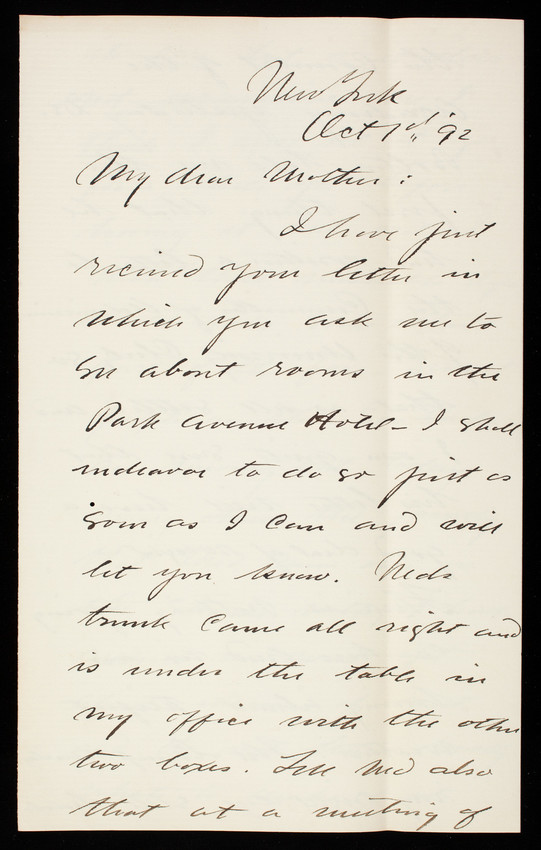 New York
Oct 1st " 92
My dear Mother:
I have just
recieved your letter in
which you ask me to
see about rooms in the
Park Avenue Hotel - I shall
endeavor to do so just as
soon as I can and will
let you know. Neds
trunk came all right and
is under the table in
my office with the other
two boxes. Tell Ned also
that at a meeting of